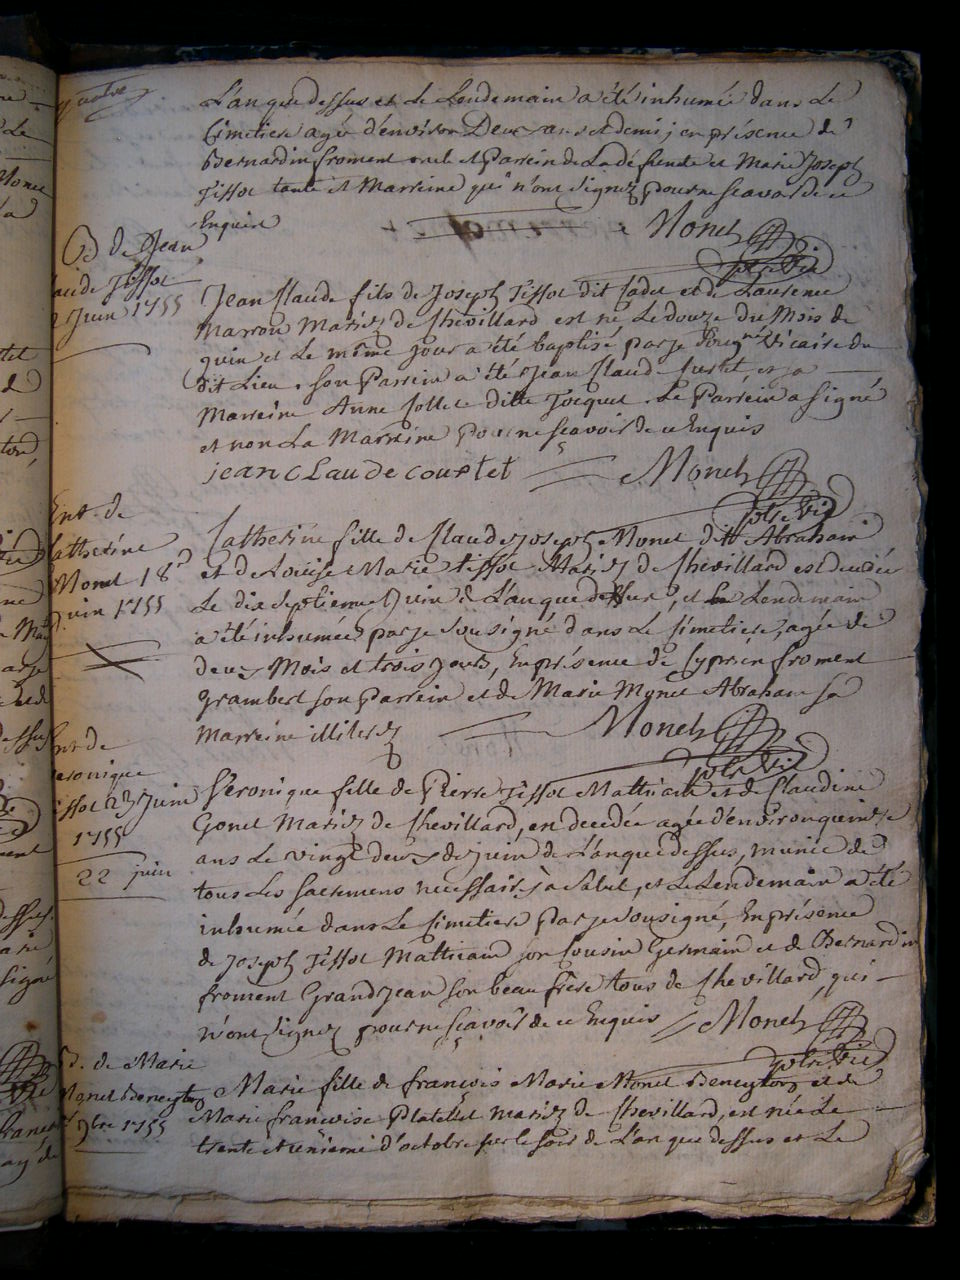 L'an que dessus et le Lendemain a été inhumé dans Le
Cimetiere agée d'environ Deux ans et demi, en présence de
Bernardin froment oncle et Parrein de La défunte et Marie Joseph
Tissot tante et Marreine qui n'ont signez pour ne scavoir de ce
Enquise
Monet
ptre Vic
B de Jean
aude Tissot
2 Juin 1755
Jean Claude fils de Joseph Tissot dit Cadet et de Laurence
Marrou Mariez de Chevillard est né Le douze du Mois de
juin et Le même jour a été baptisé par je sousigné Vicaire du
dit Lieu. son Parrein a été Jean Claude Curtet et sa
Marreine Anne Collet ditte Jocquet. Le Parrein a signé
et non La Marreine pour ne scavoir de ce Enquis
jean cLaude courtet Monet
ptre Vic
Ent. de
Catherine
Monet 18e
Juin 1755
Catherine fille de Claude Joseph Monet ditt Abraham
et de Louise Marie tissot Mariez de Chevillard est decedée
Le dix septieme Juin de L'an que dessus, et Le Lendemain
a été inhumée par je sousigné dans Le Cimetiere, agée de
deux Mois et trois jours, En présence de Cyprien froment
grambert son Parrein et de Marie Monet Abraham sa
Marreine illiterez Monet
ptre Vic
Ent de
veronique
issot 23 Juin
1755
22 juin
Veronique fille de Pierre Tissot Mathieu et de Claudine
Gonet Mariez de Chevillard, en decedée agée d'environ queinze
ans Le vingt deux de juin de L'an que dessus, munie de
tous Les sacremens necessaires à salut, et Le Lendemain a été
inhumée dans Le Cimetiere par je sousigné, En présence
de Joseph Tissot Mathieu son Cousin Germain et de Bernardin
froment Grandjean son beau frère tous de Chevillard, qui
n'ont signez pour ne scavoir de ce Enquis Monet
ptre Vic
B. de Marie
Monet Beneyton
9bre 1755
Marie fille de françois Marie Monet Beneyton et de
Marie francoise Platelet mariez de Chevillard, est née Le
trente et unieme d'octobre sur le soir de L'an que dessus et Le